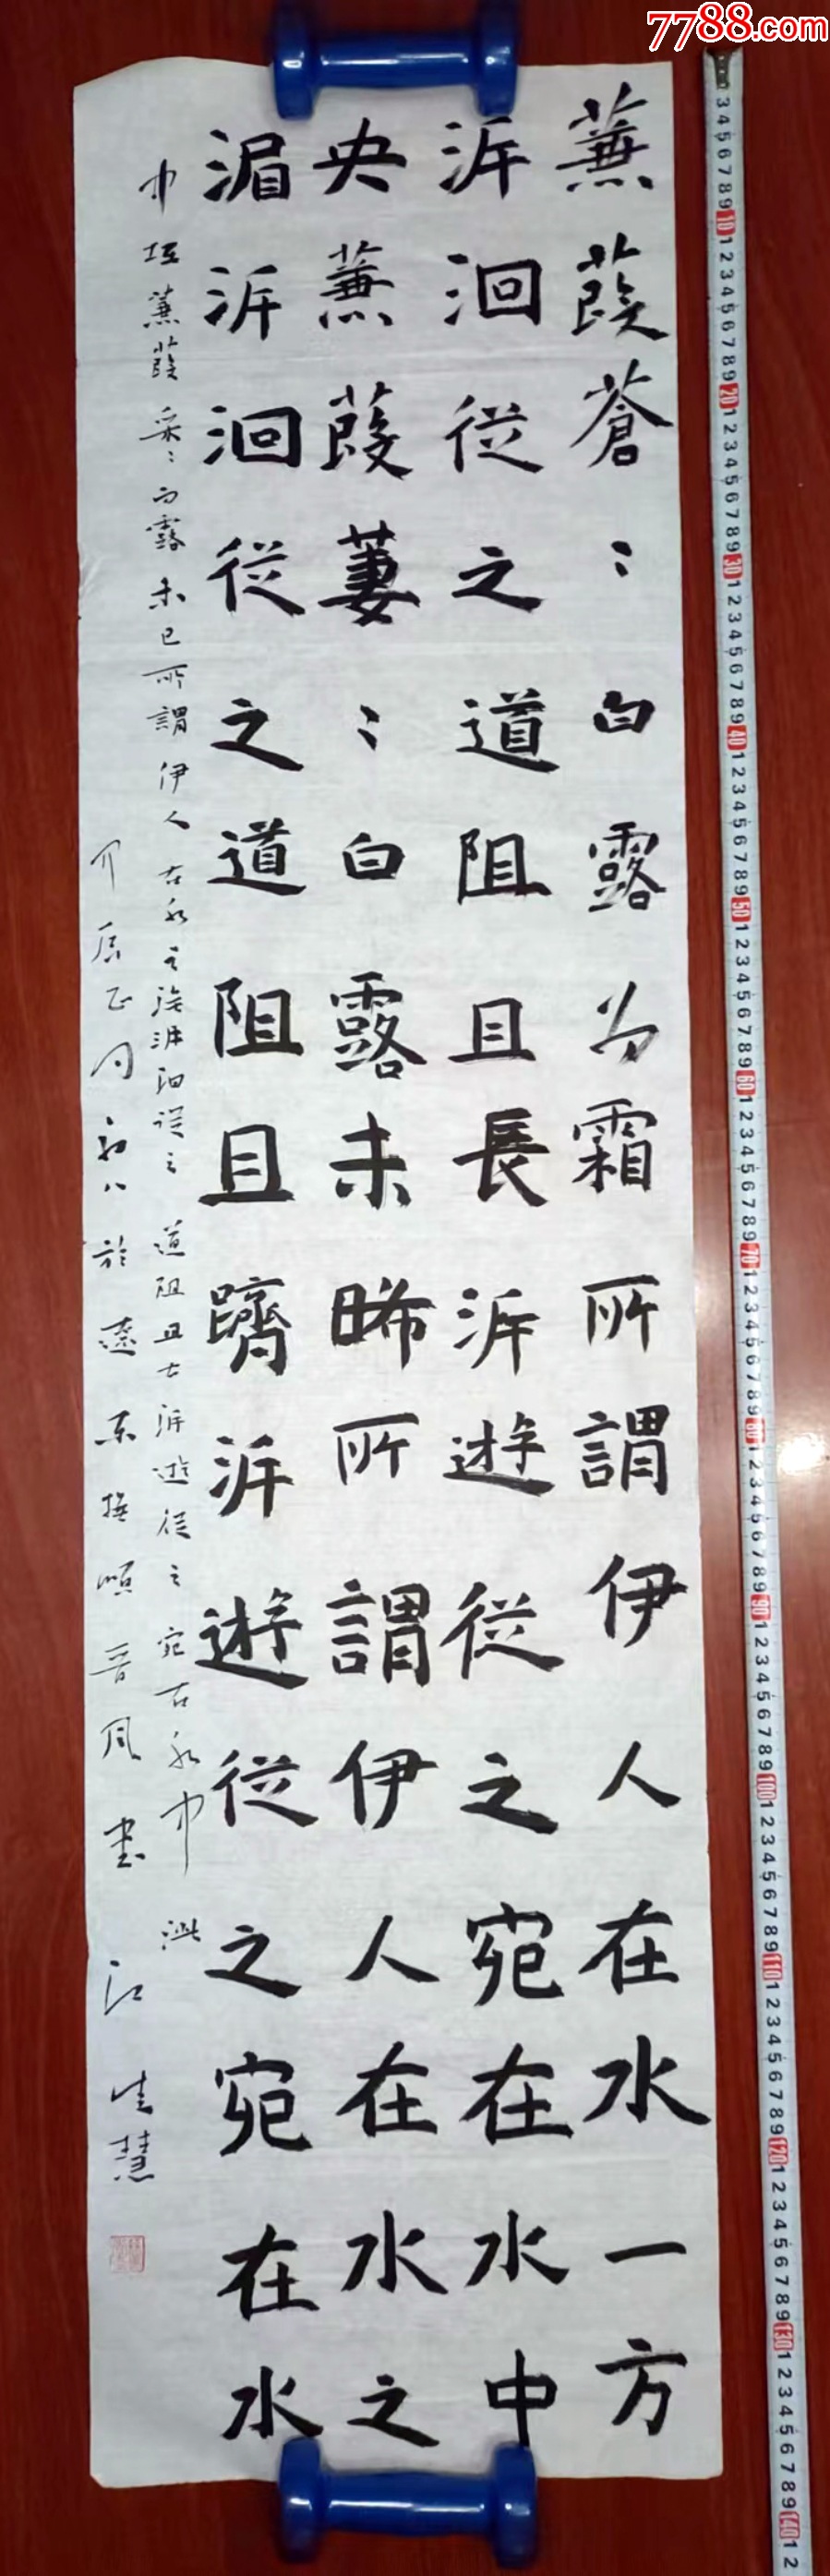 7788.com
蒹葭蒼〻白露为霜所謂伊人在水一方
泝洄從之道阻且長泝遊從之宛在水中
央蒹葭萋〻白露未晞所謂伊人在水之
湄泝洄從之道阻且躋泝遊從之宛在水
中坻蒹葭采〻白露未已所謂伊人在水之涘泝洄從之道阻且右泝遊從之宛在水中沚
正月初八於遼東撫順晉風書江慧